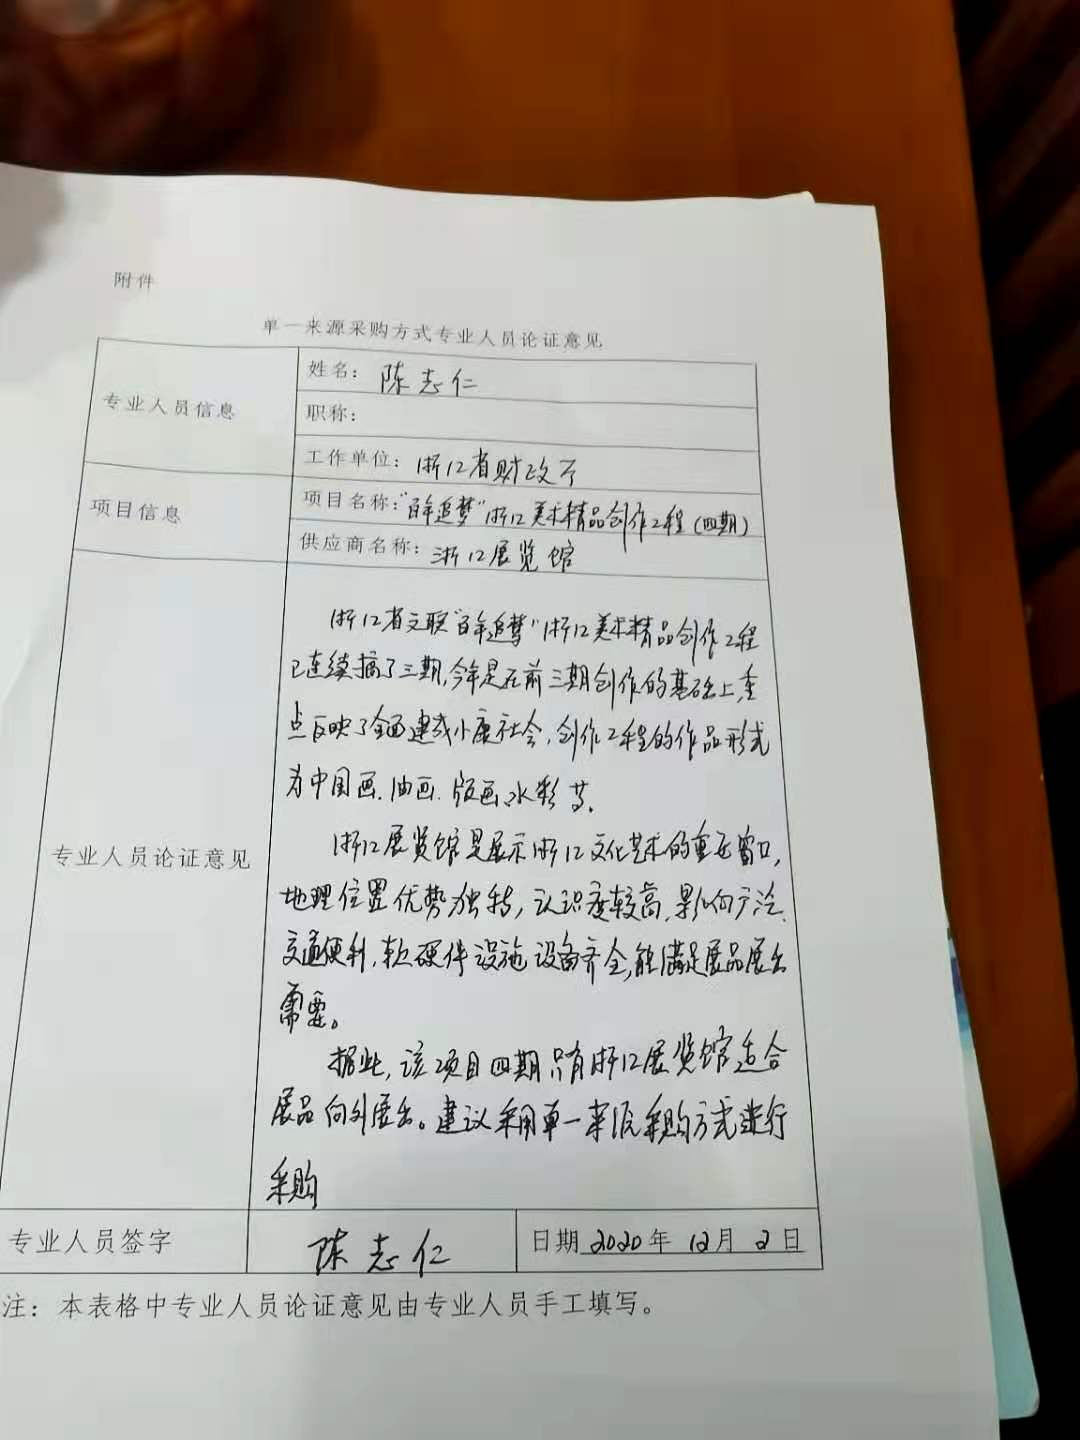 附件
单一来源采购方式专业人员论证意见
专业人员信息
姓名：陈志仁
职称：
工作单位：浙江省财政厅
项目信息
项目名称：“百年追梦”浙江美术精品创作工程（四期）
供应商名称：浙江展览馆
专业人员论证意见
浙江省文联“百年追梦”浙江美术精品创作工程
已连续搞了三期，今年是在前三期创作的基础上，重
点反映了全面建成小康社会，创作工程的作品形式
为中国画、油画、版画、水彩等。
浙江展览馆是展示浙江文化艺术的重要窗口，
地理位置优势独特，认识度较高，影响广泛，
交通便利，软硬件设施设备齐全，能满足展品展出
需要。
据此，该项目四期只有浙江展览馆适合
展品向外展出。建议采用单一来源采购方式进行
采购
专业人员签字
陈志仁
日期2020年12月2日
注：本表格中专业人员论证意见由专业人员手工填写。